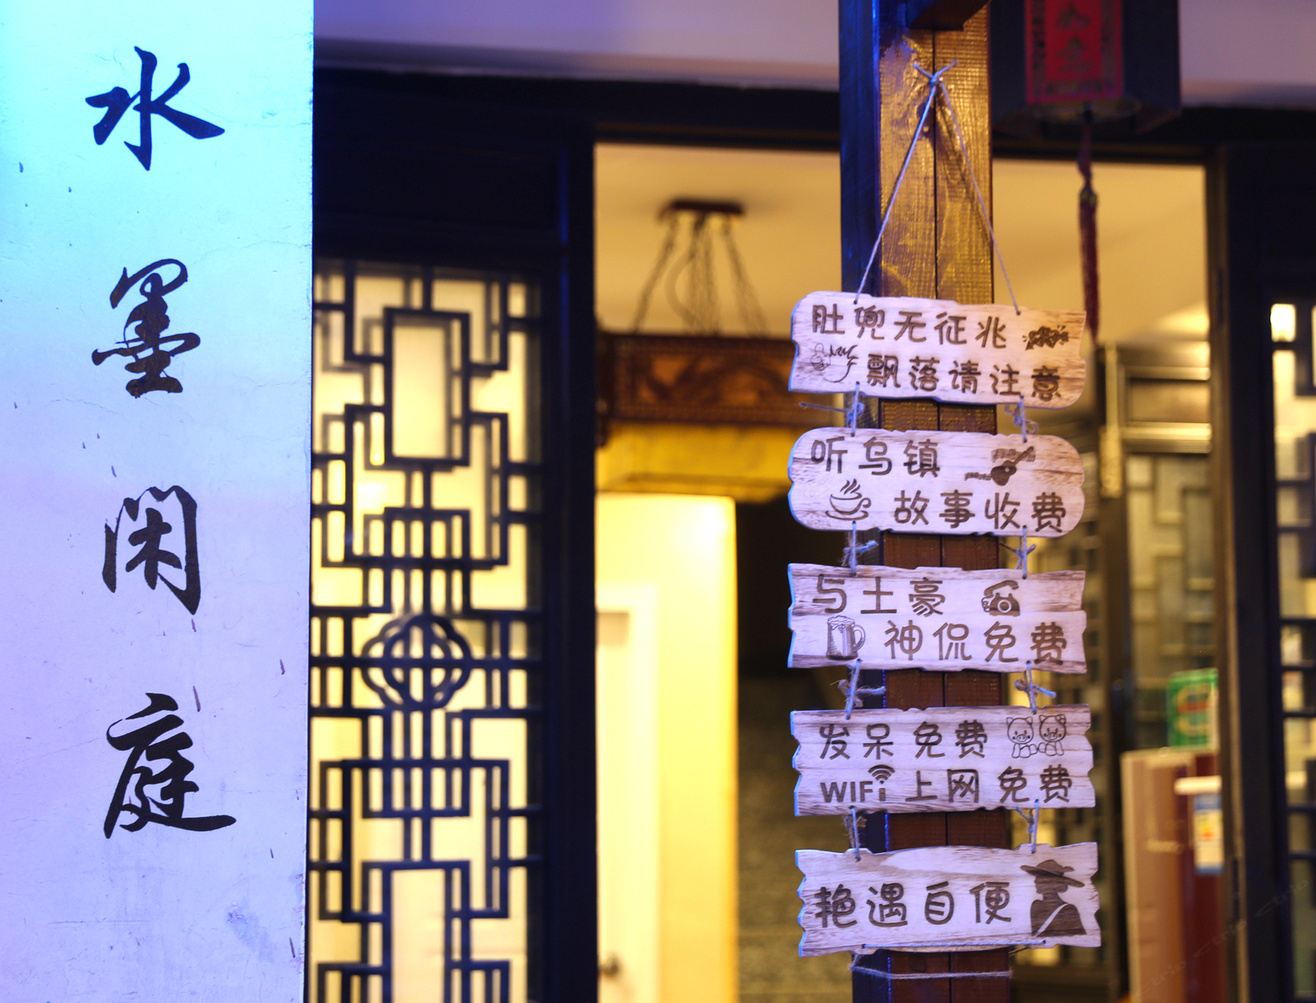 水墨闲庭
肚兜无征兆
飘落请注意
听乌镇
故事收费
与土豪
神侃免费
发呆免费
WiFi上网免费
艳遇自便